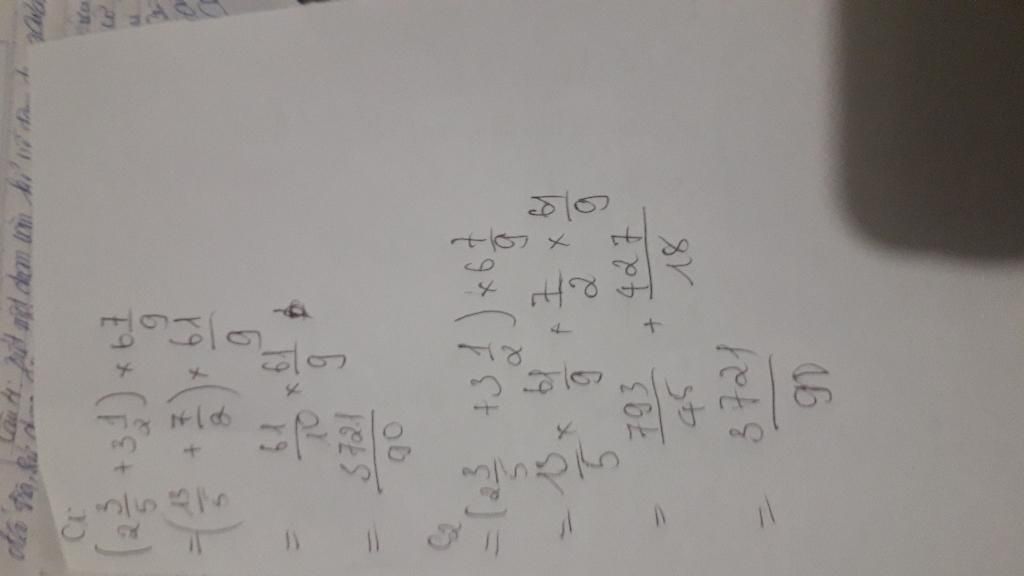 C1:
(2 3/5 + 3 1/2) × 6 7/9
= (13/5 + 7/2) × 61/9
= 61/10 × 61/9
= 3721/90
C2
= (2 3/5 + 3 1/2) × 6 7/9
= 13/5 × 61/9 + 7/2 × 61/9
= 793/45 + 427/18
= 3721/90